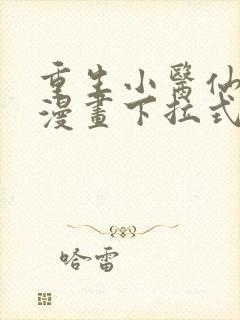 重生小醫仙
漫畫下拉式
哈雷